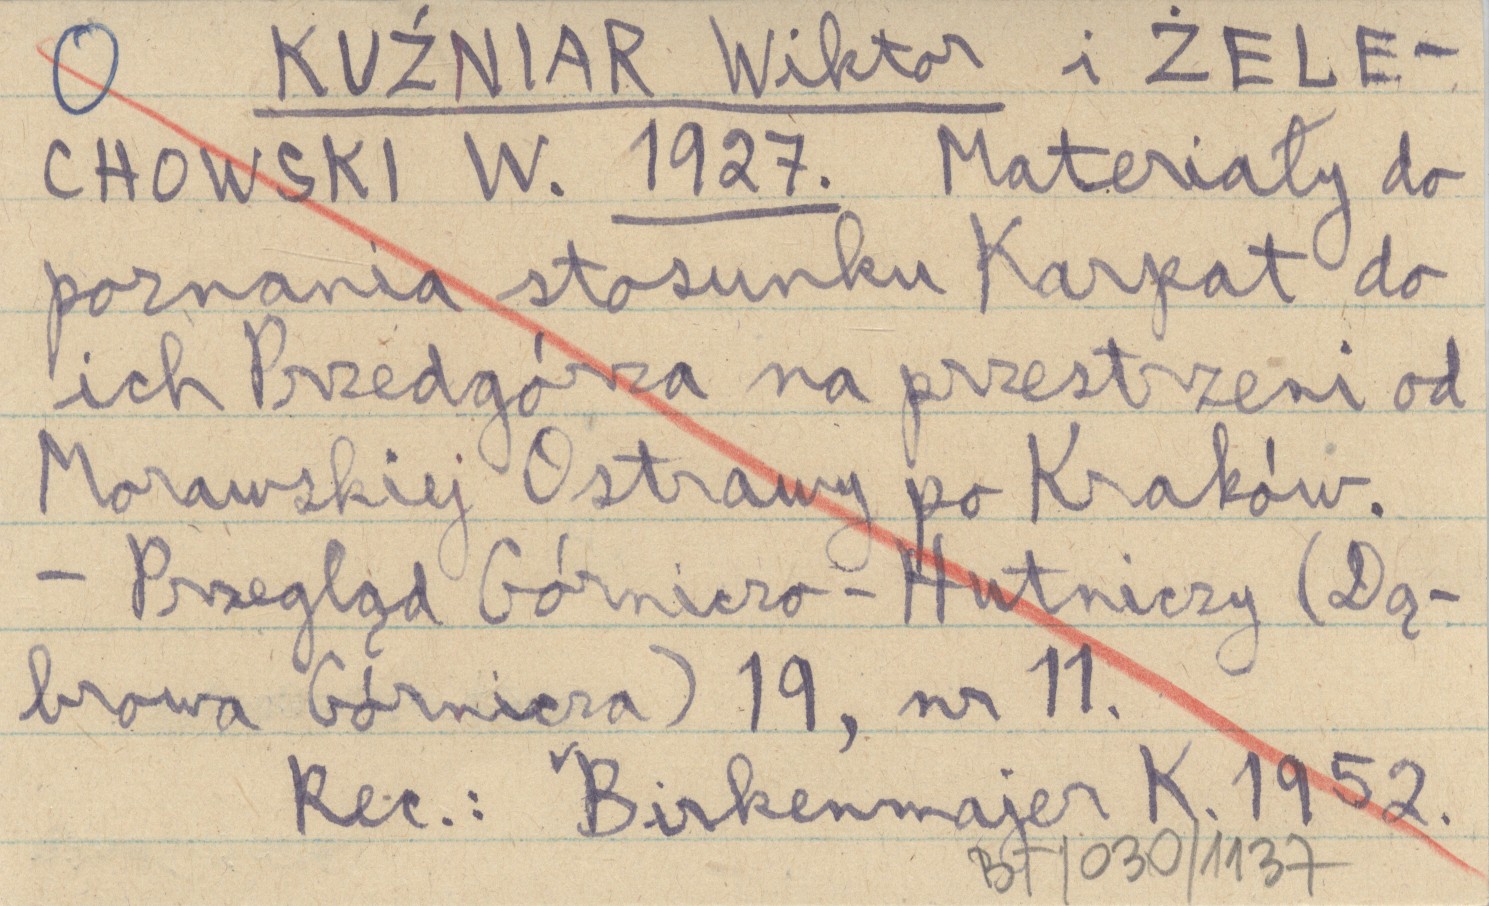 O KUŹNIAR Wiktor i ŻELE-
CHOWSKI W. 1927. Materiały do
poznania stosunku Karpat do
ich Przedgórza na przestrzeni od
Morawskiej Ostrawy po Kraków.
- Przegląd Górniczo-Hutniczy (Dą-
browa Górnicza) 19, nr 11.
Rec.: Birkenmajer K. 1952.
BT/030/1137